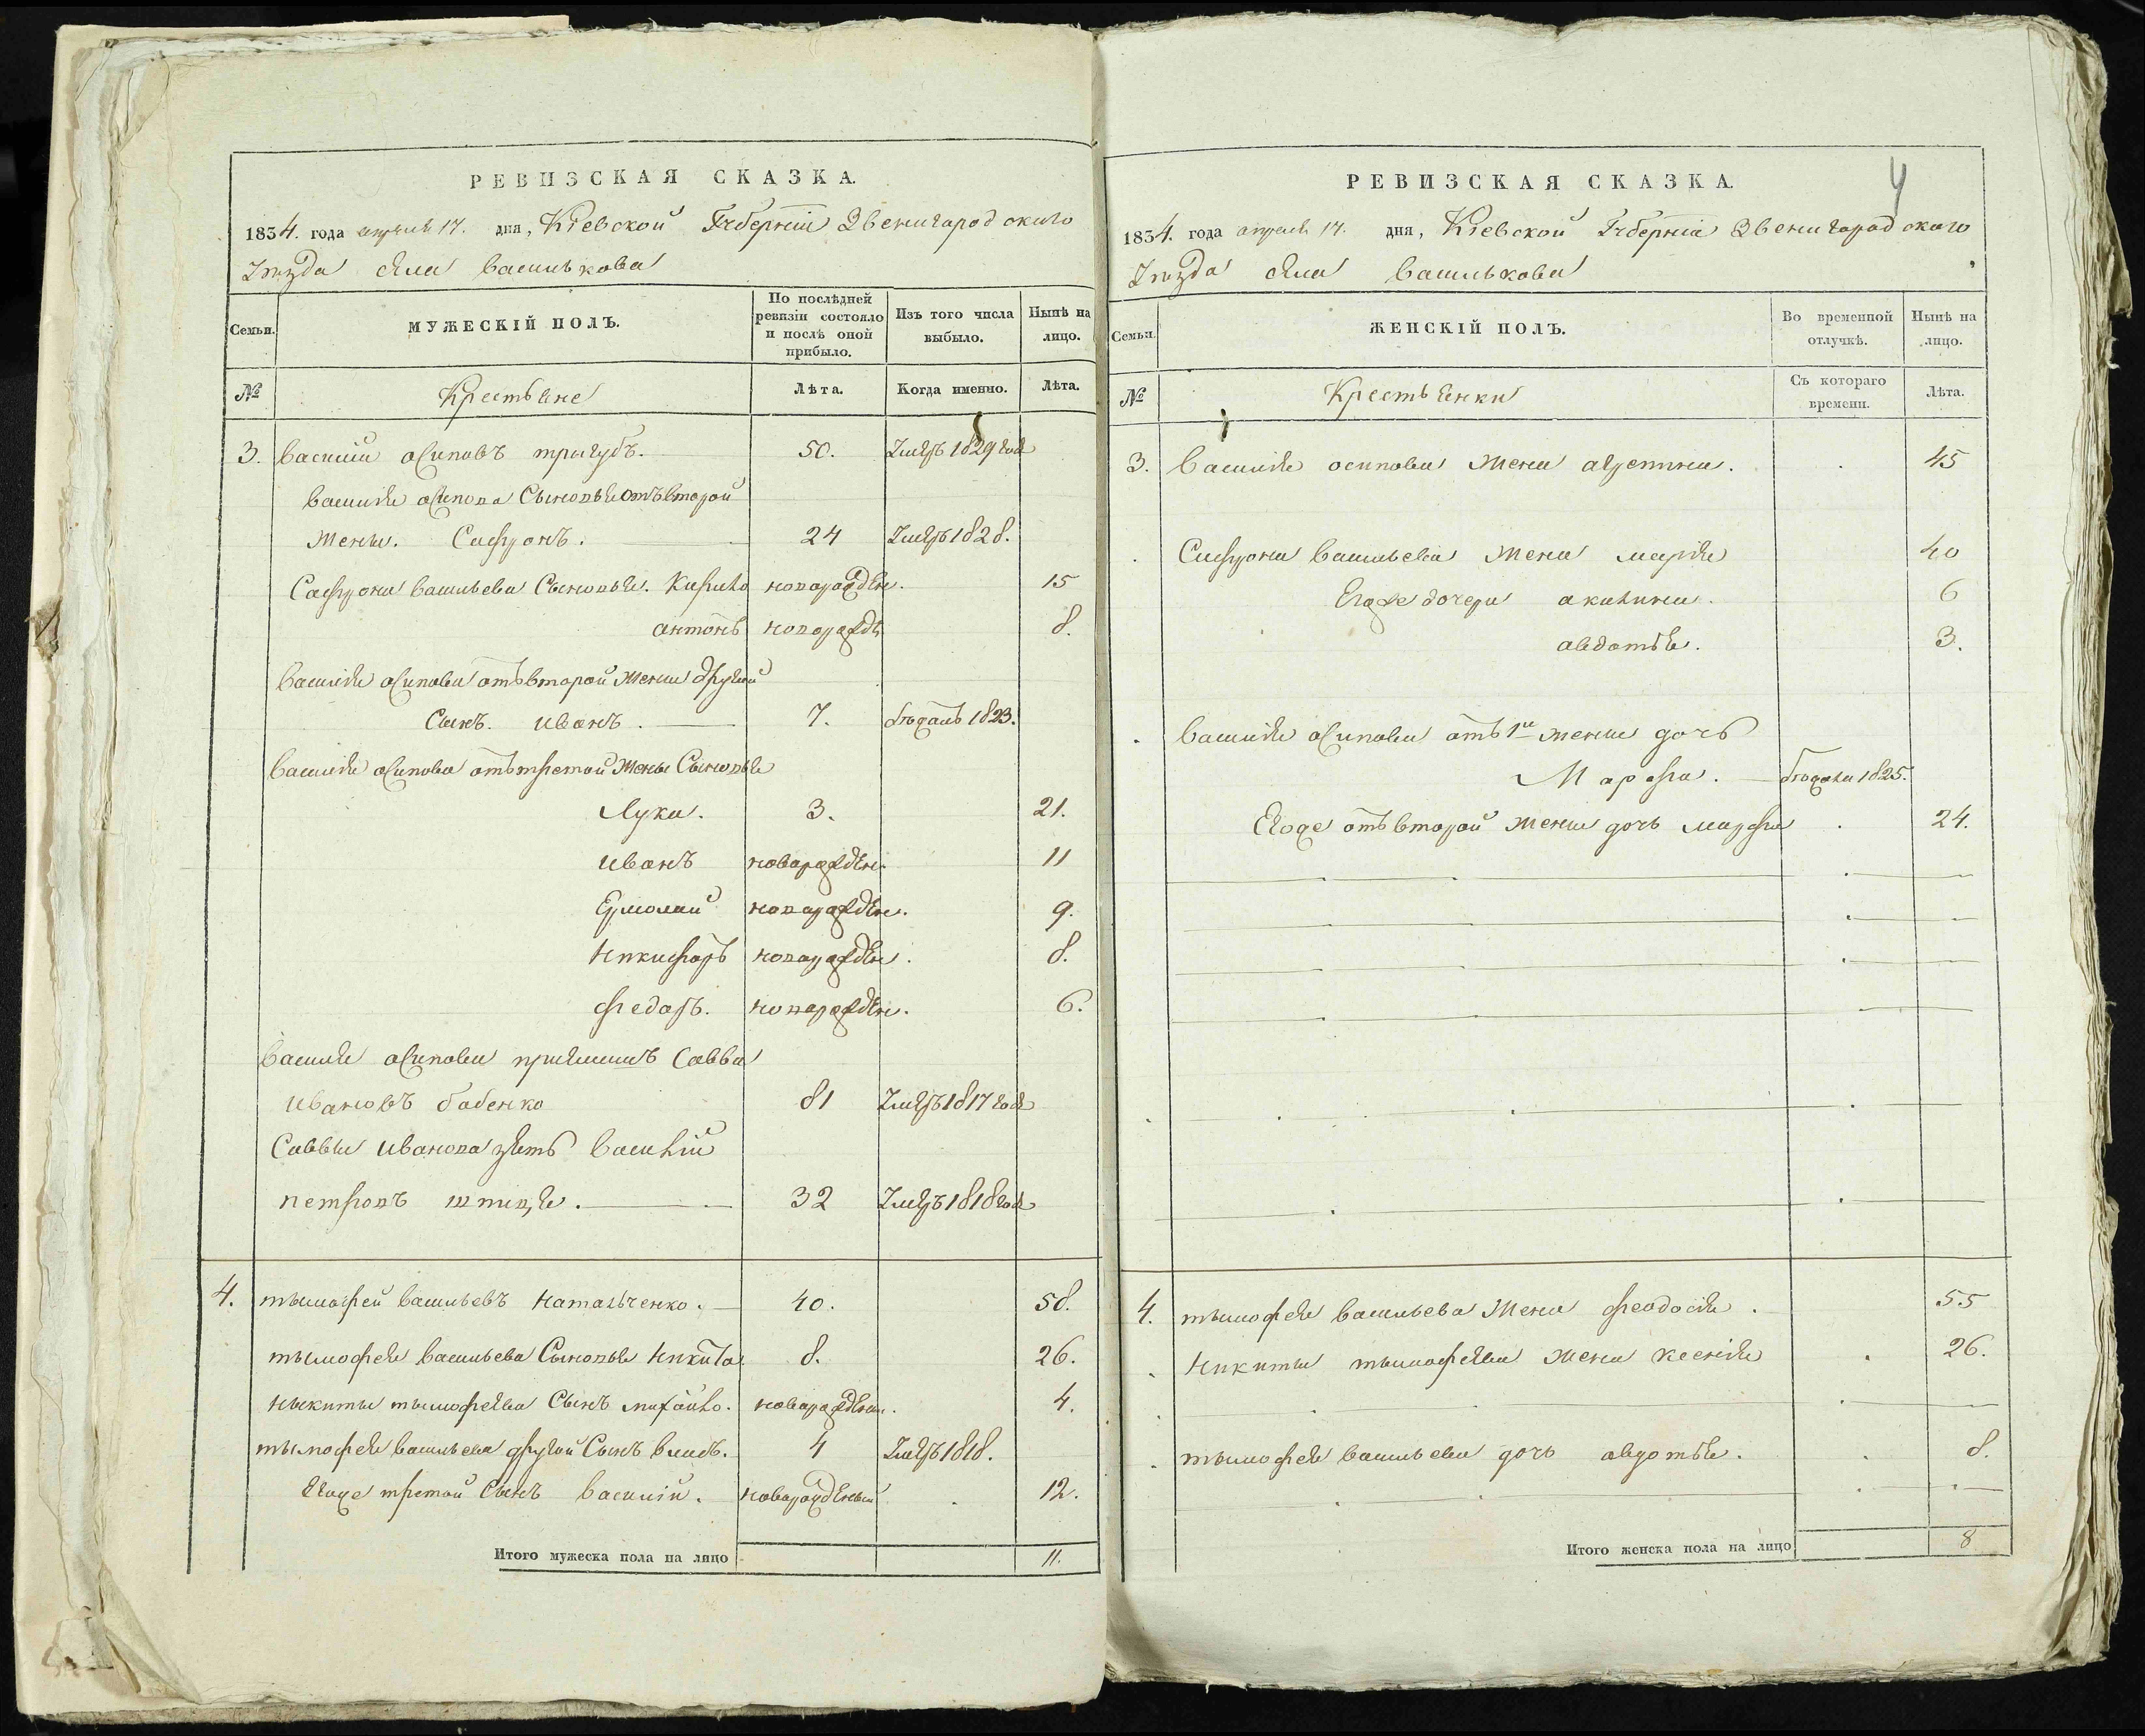 РЕВИЗСКАЯ СКАЗКА.
1834. года апреля 17. дня, Кіевской Губерніи Звенигородского
Уѣзда села Василькова
Семьи.
МУЖЕСКІЙ ПОЛЪ.
По послѣдней ревизіи состояло и послѣ оной прибыло.
Изъ того числа выбыло.
Нынѣ на лицо.
№
Крестьяне
Лѣта.
Когда именно.
Лѣта.
3. Василий осиповъ тригубъ. 50. Умеръ 1829 года
Василия осипова Сыновья отъ второй
жены. Сафронъ. 24 Умеръ 1828.
Сафрона васильева Сыновья. Кирило новорожден. 15
антонъ новорожде 8.
Василия осипова отъ второй жены другой
Сынъ. иванъ. 7. отданъ 1823.
Василия осипова отъ третой жены Сыновья
Лука. 3. 21.
иванъ новорожден. 11
Ермолай новорожден. 9.
Никифоръ новорожден. 8.
федоръ. новорожден. 6.
Василия осипова приемишъ Савва
ивановъ бабенко 81 Умеръ 1817 года
Саввы иванова зять василий
петровъ шпица. 32 Умеръ 1818 года
4. тымофей васильевъ Натальченко. 40. 58.
тымофея васильева Сыновья никита 8. 26.
никиты тымофеева Сынъ михайло. новорожденн. 4.
тымофея васильева другой Сынъ власъ. 4 Умеръ 1818.
Егоже третой Сынъ василий. новорожденый 12.
Итого мужеска пола на лицо 11.
РЕВИЗСКАЯ СКАЗКА.
4
1834. года апреля 17. дня, Кіевской Губерніи Звенигородского
Уѣзда села Василькова
Семьи.
ЖЕНСКІЙ ПОЛЪ.
Во временной отлучкѣ.
Нынѣ на лицо.
№
Крестьянки
Съ котораго времени.
Лѣта.
3. Василия осипова жена агрепина. 45
Сафрона васильева жена мария 40
Егоже дочери акилина. 6
авдотья. 3.
Василия осипова отъ 1й жены дочь
Марфа. отдана 1825.
Егоже отъ второй жены дочь марфа 24.
4. тымофея васильева жена феодосия. 55
Никиты тымофеева жена ксения 26.
тымофея васильева дочь авдотья. 8.
Итого женска пола на лицо 8